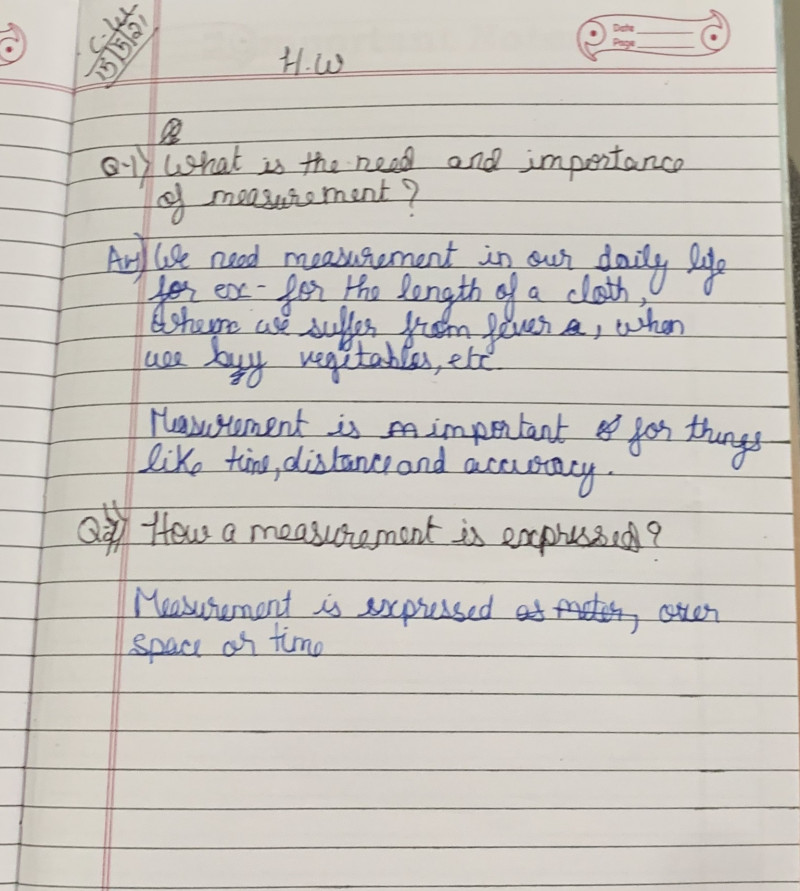 15/5/21
Date
Page
H.W
Q-1) What is the need and importance
of measurement?
An) We need measurement in our daily life
for ex- for the length of a cloth,
when we suffer from fever, when
we buy vegitables, etc.
Measurement is important for things
like time, distance and accuracy.
Q2) How a measurement is expressed?
Measurement is expressed as meter, over
space or time